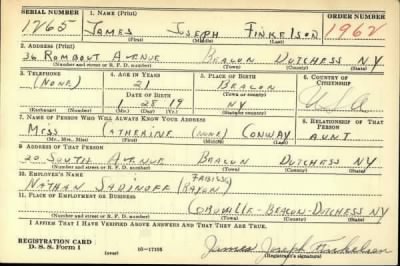 SERIAL NUMBER 1. NAME (Print) ORDER NUMBER
1265 JAMES JOSEPH FINKELSON 1962
(First) (Middle) (Last)
2. ADDRESS (Print)
36 ROMBOUT AVENUE BEACON DUTCHESS NY
(Number and street or R. F. D. number) (Town) (County) (State)
3. TELEPHONE 4. AGE IN YEARS 5. PLACE OF BIRTH 6. COUNTRY OF CITIZENSHIP
(NONE) 21 BEACON
DATE OF BIRTH (Town or county)
1 28 19 NY U.S.A.
(Exchange) (Number) (Mo.) (Day) (Yr.) (State or country)
7. NAME OF PERSON WHO WILL ALWAYS KNOW YOUR ADDRESS 8. RELATIONSHIP OF THAT PERSON
CATHERINE (NONE) CONWAY AUNT
(Mr., Mrs., Miss) (First) (Middle) (Last)
9. ADDRESS OF THAT PERSON
20 SOUTH AVENUE BEACON DUTCHESS NY
(Number and street or R. F. D. number) (Town) (County) (State)
10. EMPLOYER'S NAME
NATHAN
11. PLACE OF EMPLOYMENT OR BUSINESS
BEACON-DUTCHESS NY
(Number and street or R. F. D. number) (Town) (County) (State)
I AFFIRM THAT I HAVE VERIFIED ABOVE ANSWERS AND THAT THEY ARE TRUE.
REGISTRATION CARD
D. S. S. Form 1 16-17105 James Joseph Finkelson
(Registrant's signature)